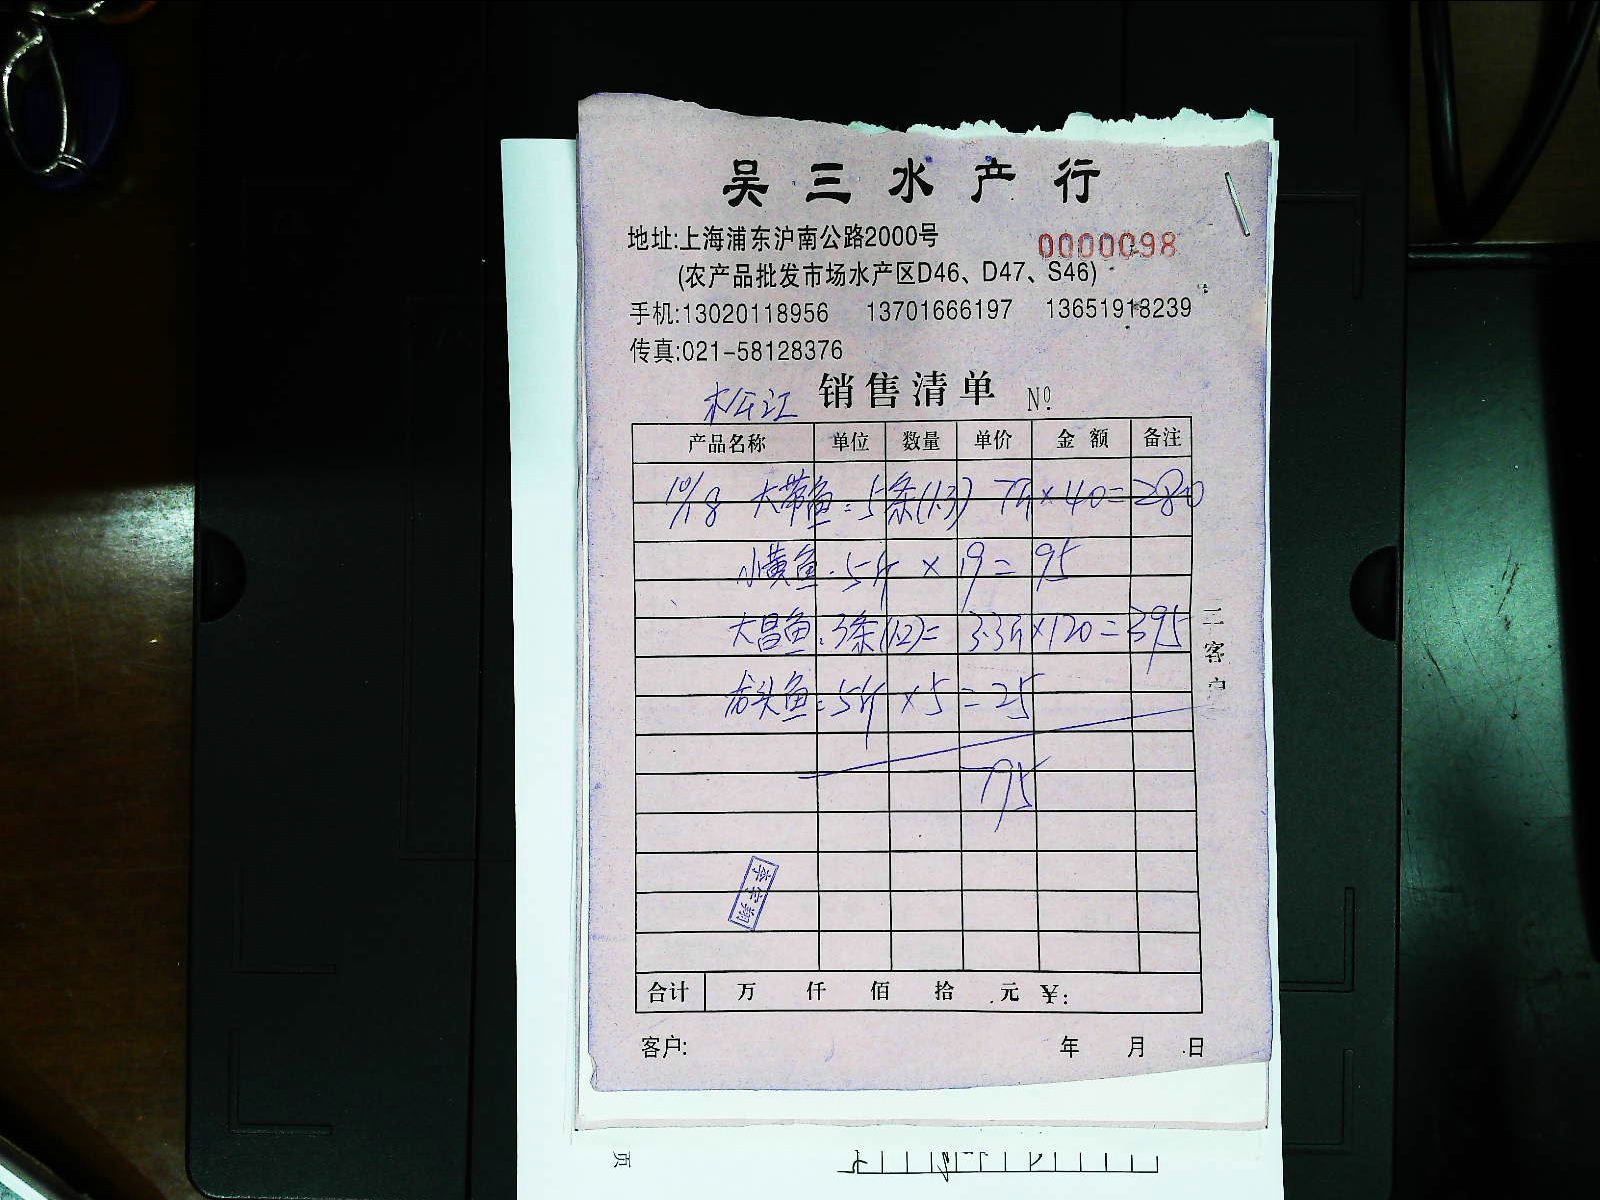 吴三水产行
地址:上海浦东沪南公路2000号
0000098
(农产品批发市场水产区D46、D47、S46)
手机:13020118956 13701666197 13651913239
传真:021-58128376
松江 销售清单 Nº
产品名称 单位 数量 单价 金额 备注
10/18 大带鱼:5条(1.3) 7斤×40=280
小黄鱼:5斤×19=95
大昌鱼:3条(1.2)= 3.3斤×120=395
龙头鱼:5斤×5=25
795
李宇翔
合计 万 仟 佰 拾 元 ¥:
客户: 年 月 日
二客户
页